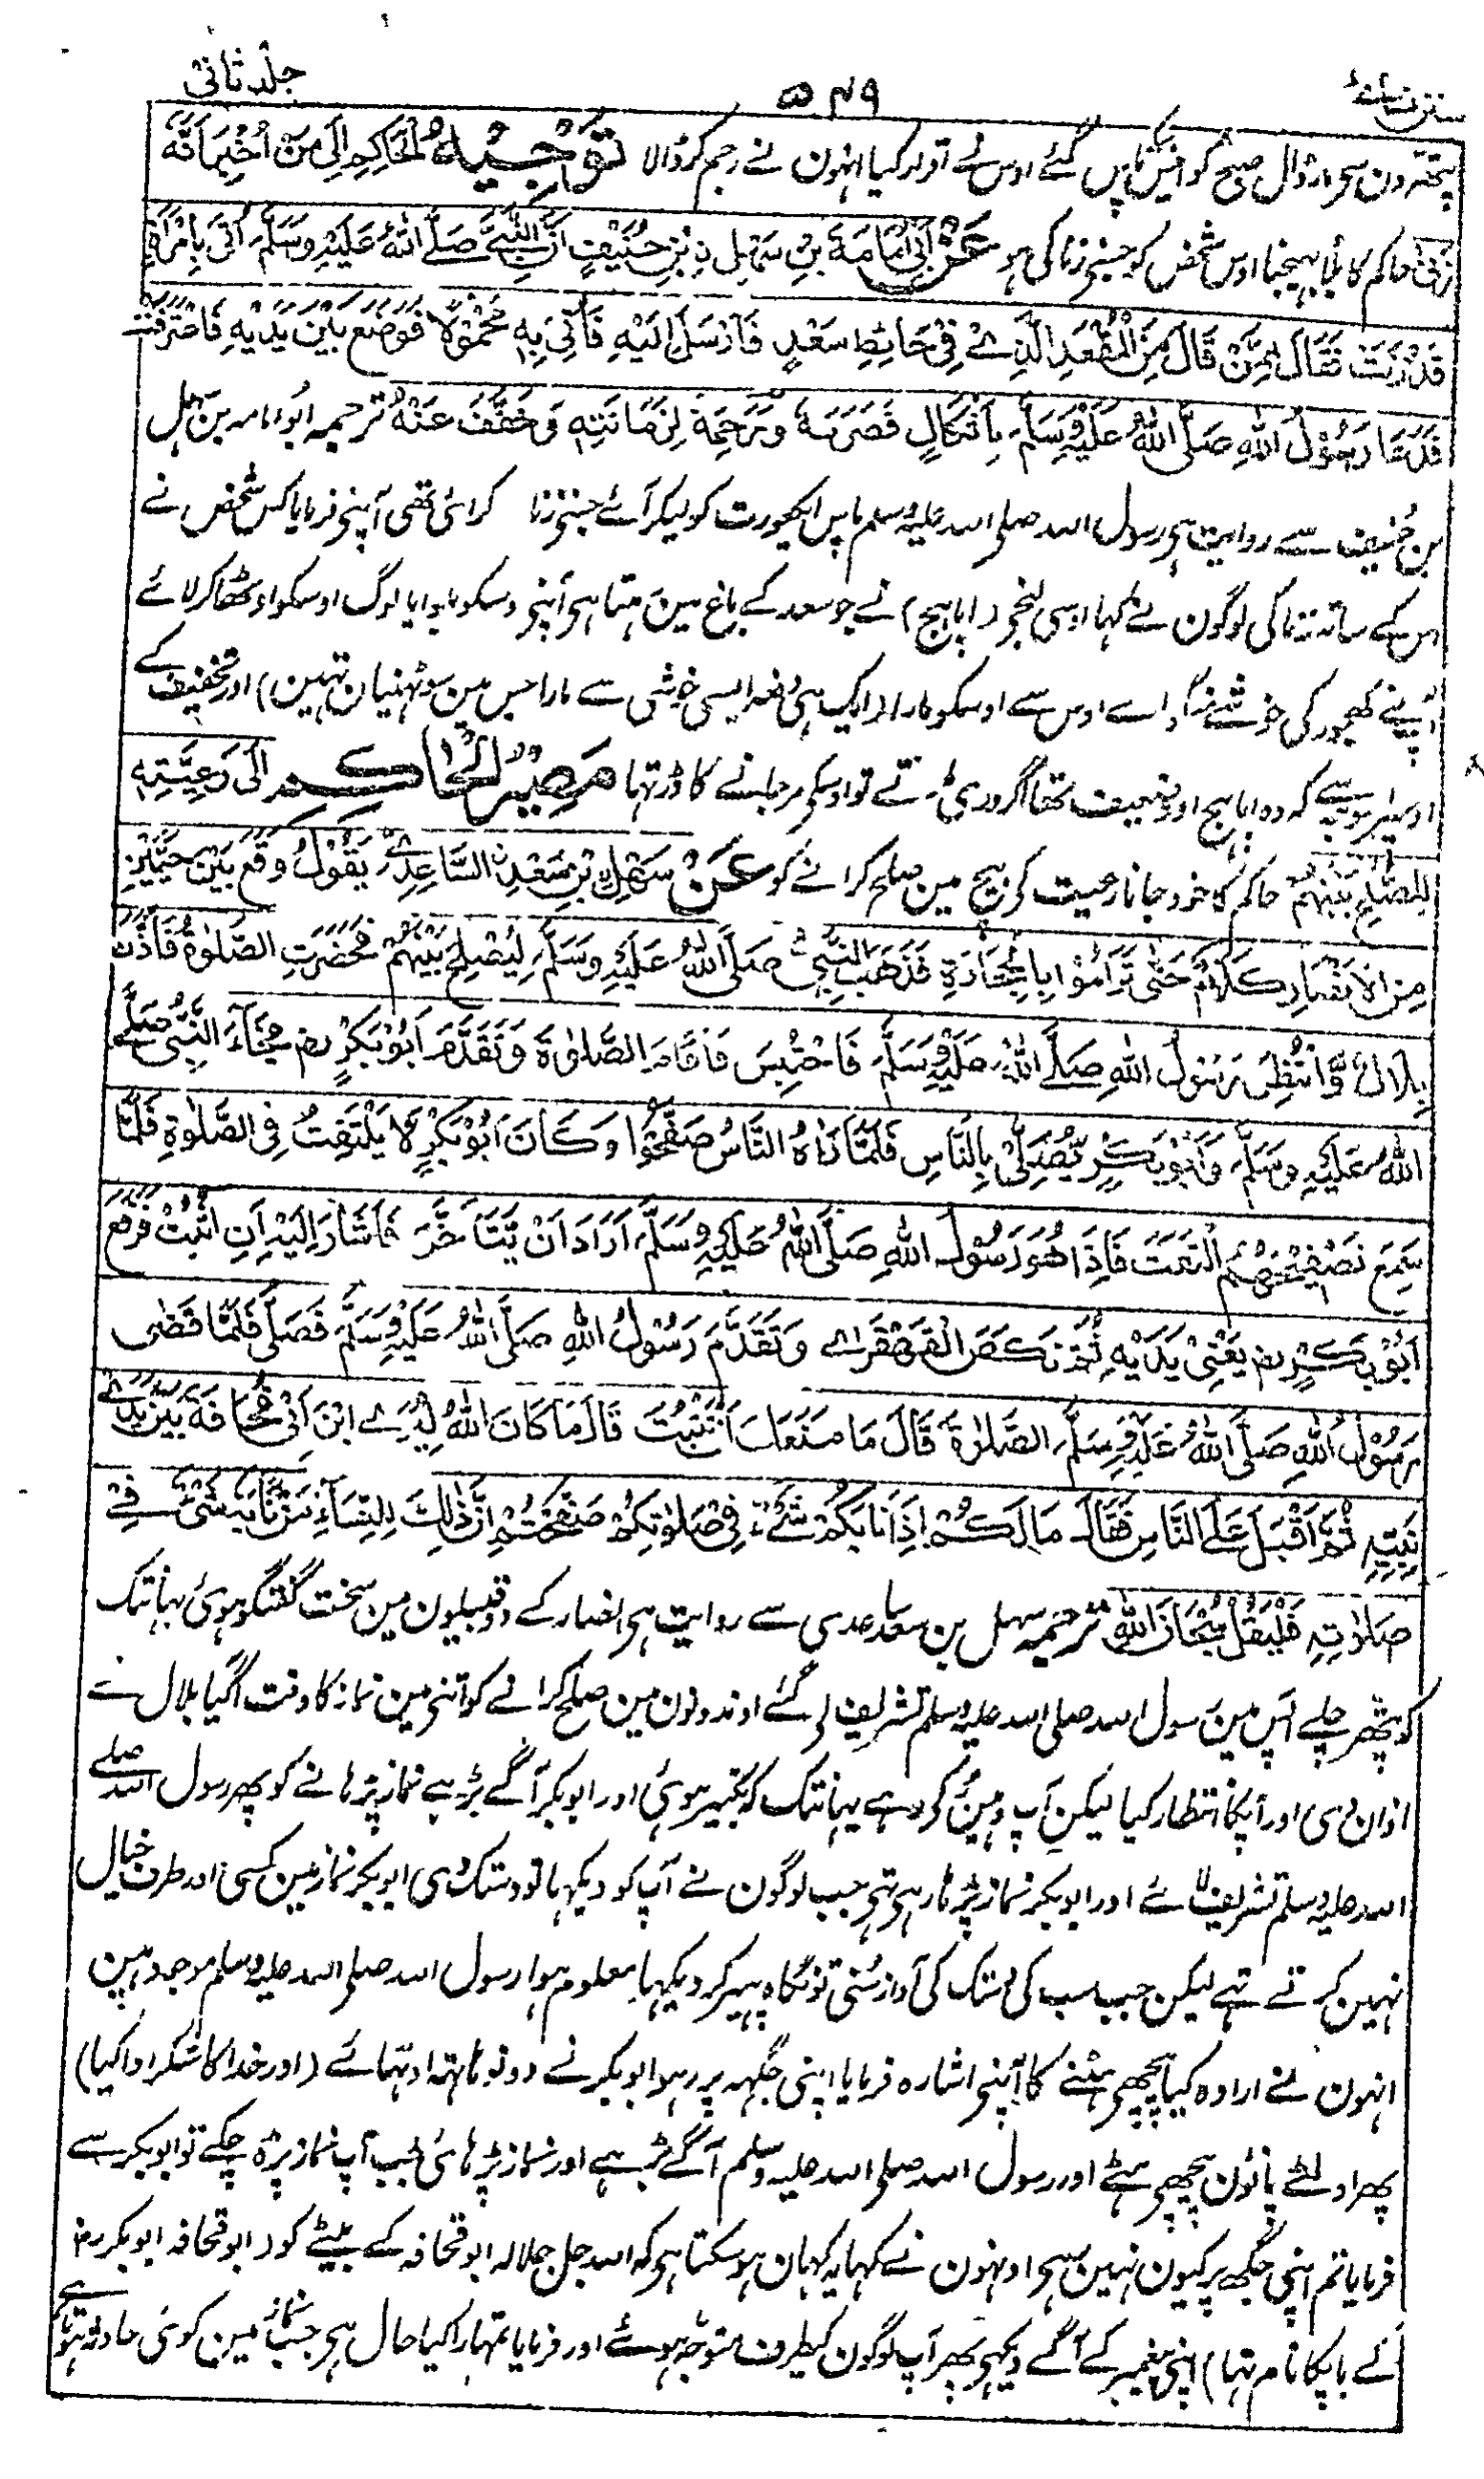 سنن نسائی ۵۴۹ جلد ثانی
صبح کو انیس پاس گئے اوس نے اقرار کیا انہون نے رجم کر ڈالا تَوْجِيْهُ الْحَاكِمِ اِلٰى مَنْ اُخْبِرَ اَنَّهٗ
زَنٰى حاکم کا بلا بہیجنا اوس شخص کو جسنے زنا کی ہو عَنْ اَبِیْ اُمَامَةَ بْنِ سَهْلِ بْنِ حُنَيْفٍ اَنَّ النَّبِيَّ صَلَّى اللّٰهُ عَلَيْهِ وَسَلَّمَ اُتِیَ بِامْرَاَةٍ
قَدْ زَنَتْ فَقَالَ مِمَّنْ قَالَ مِنَ الْمُقْعَدِ الَّذِیْ فِیْ حَائِطِ سَعْدٍ فَاَرْسَلَ اِلَيْهِ فَاُتِیَ بِهٖ مَحْمُوْلًا فَوُضِعَ بَيْنَ يَدَيْهِ فَاعْتَرَفَ
فَدَعَا رَسُوْلُ اللّٰهِ صَلَّى اللّٰهُ عَلَيْهِ وَسَلَّمَ بِاِثْكَالٍ فَضَرَبَهٗ وَرَحِمَهٗ لِزَمَانَتِهٖ وَخَفَّفَ عَنْهُ ترجمہ ابو امامہ بن سہل
بن حنیف سے روایت ہی رسول اللہ صلی اللہ علیہ وسلم پاس ایکعورت کو لیکر آئے جسنے زنا کرائی تھی آپنے فرمایا کس شخص نے
اس کے ساتھ زنا کی لوگون نے کہا اوسی لنجی (اپاہج) نے جو سعد کے باغ مین رہتا ہی آپنے اوسکو بلوایا لوگ اوسکو اوٹھا کر لائے
آپنے کھجور کی خوشے منگوائے اوس سے اوسکو مارا (ایک ہی دفعہ ایسی خوشی سے مارا جس مین سو ٹہنیان تہین) اور تخفیف کے
اوسپر اسوجہ سے کہ وہ اپاہج اور ضعیف تھا اگر دری پڑتے تو اوسکی مرجانے کا ڈر تہا مَصِيْرُ الْحَاكِمِ اِلٰى رَعِيَّتِهٖ
لِلصُّلْحِ بَيْنَهُمْ حاکم کا خود جانا رعیت کی بیچ مین صلح کرانے کو عَنْ سَهْلِ بْنِ سَعْدٍ السَّاعِدِیِّ يَقُوْلُ وَقَعَ بَيْنَ حَيَّيْنِ
مِنَ الْاَنْصَارِ كَلَامٌ حَتّٰى تَرَامَوْا بِالْحِجَارَةِ فَذَهَبَ النَّبِيُّ صَلَّى اللّٰهُ عَلَيْهِ وَسَلَّمَ لِيُصْلِحَ بَيْنَهُمْ فَحَضَرَتِ الصَّلٰوةُ فَاَذَّنَ
بِلَالٌ وَّانْتُظِرَ رَسُوْلُ اللّٰهِ صَلَّى اللّٰهُ عَلَيْهِ وَسَلَّمَ فَاحْتُبِسَ فَاَقَامَ الصَّلٰوةَ وَتَقَدَّمَ اَبُوْبَكْرٍ رض فَجَآءَ النَّبِیُّ صَلَّى
اللّٰهُ عَلَيْهِ وَسَلَّمَ وَاَبُوْبَكْرٍ يُّصَلِّیْ بِالنَّاسِ فَلَمَّا رَاٰهُ النَّاسُ صَفَّحُوْا وَكَانَ اَبُوْبَكْرٍ لَا يَلْتَفِتُ فِی الصَّلٰوةِ فَلَمَّا
سَمِعَ تَصْفِيْحَهُمُ الْتَفَتَ فَاِذَا هُوَ رَسُوْلُ اللّٰهِ صَلَّى اللّٰهُ عَلَيْهِ وَسَلَّمَ اَرَادَ اَنْ يَّتَاَخَّرَ فَاَشَارَ اِلَيْهِ اَنِ اثْبُتْ فَرَفَعَ
اَبُوْبَكْرٍ رض يَعْنِیْ يَدَيْهِ ثُمَّ نَكَصَ الْقَهْقَرٰى وَتَقَدَّمَ رَسُوْلُ اللّٰهِ صَلَّى اللّٰهُ عَلَيْهِ وَسَلَّمَ فَصَلّٰى فَلَمَّا قَضٰى
رَسُوْلُ اللّٰهِ صَلَّى اللّٰهُ عَلَيْهِ وَسَلَّمَ الصَّلٰوةَ قَالَ مَا مَنَعَكَ اَنْ تَثْبُتَ قَالَ مَا كَانَ اللّٰهُ لِيَرٰى ابْنَ اَبِیْ قُحَافَةَ بَيْنَ يَدَیْ
نَبِيِّهٖ ثُمَّ اَقْبَلَ عَلَى النَّاسِ فَقَالَ مَا لَكُمْ اِذَا نَابَكُمْ شَیْءٌ فِیْ صَلٰوتِكُمْ صَفَّحْتُمْ اِنَّ ذٰلِكَ لِلنِّسَآءِ مَنْ نَّابَهٗ شَیْءٌ فِیْ
صَلٰوتِهٖ فَلْيَقُلْ سُبْحَانَ اللّٰهِ ترجمہ سہل بن سعد ساعدی سے روایت ہی انصار کے دو قبیلون مین سخت گفتگو ہوئی یہانتک
کہ پتھر چلے آپس مین رسول اللہ صلی اللہ علیہ وسلم تشریف لی گئے اوند ونون مین صلح کرانے کو اتنی مین نماز کا وقت آگیا بلال نے
اذان دی اور آپکا انتظار کیا لیکن آپ وہین رکے رہے یہانتک کہ تکبیر ہوئی اور ابوبکر آگے بڑہے نماز پڑہانے کو پھر رسول اللہ صلے
اللہ علیہ وسلم تشریف لائے اور ابوبکر نماز پڑہا رہی تھی جب لوگون نے آپ کو دیکہا تو دستک دی ابوبکر نماز مین کسی اور طرف خیال
نہین کرتے تہے لیکن جب سب کی دستک کی آواز سنی تو نگاہ پہیر کر دیکہا معلوم ہوا رسول اللہ صلی اللہ علیہ وسلم موجود ہین
انہون نے ارادہ کیا پیچھی ہٹنے کا آپنے اشارہ فرمایا اپنی جگہہ پر رہو ابوبکر نے دونو ہاتھہ اوٹہائے (اور خدا کا شکر ادا کیا)
پھر اولٹے پائون پیچھی ہٹے اور رسول اللہ صلی اللہ علیہ وسلم آگے بڑہے اور نماز پڑہائی جب آپ نماز پڑہ چکے تو ابوبکر سے
فرمایا تم اپنی جگہہ پر کیون نہین رہی اونہون نے کہا یہ کہان ہو سکتا ہی کہ اللہ جل جلالہ ابو قحافہ کے بیٹے کو (ابو قحافہ ابوبکر رض
کے باپکا نام تہا) اپنی پیغمبر کے آگے دیکہی پھر آپ لوگون کیطرف متوجہ ہوئے اور فرمایا تمہارا کیا حال ہی جب نماز مین کوئی حادثہ ہوتا ہے